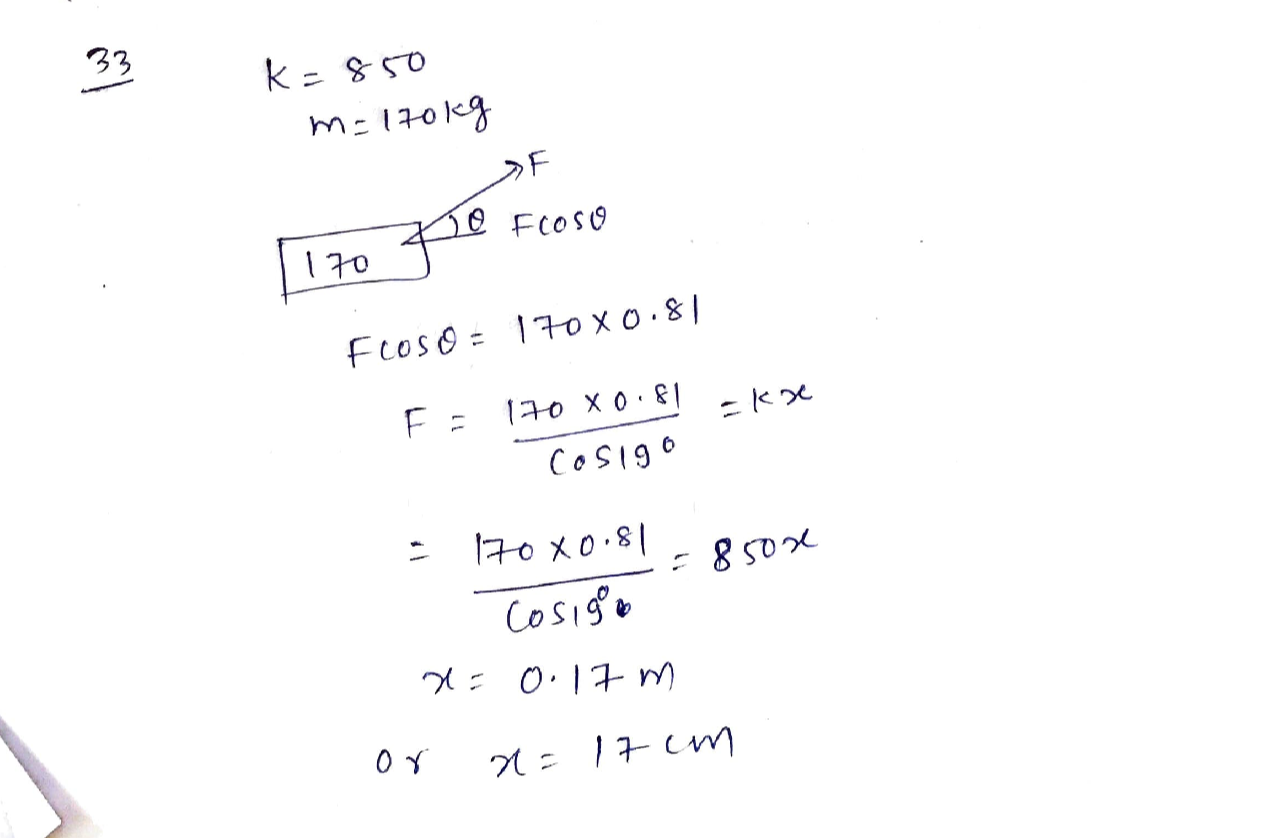 33
k = 850
m = 170 kg
F
θ Fcosθ
170
Fcosθ = 170 x 0.81
F = 170 x 0.81 / Cos19° = kx
= 170 x 0.81 / Cos19° = 850x
x = 0.17 m
or x = 17 cm